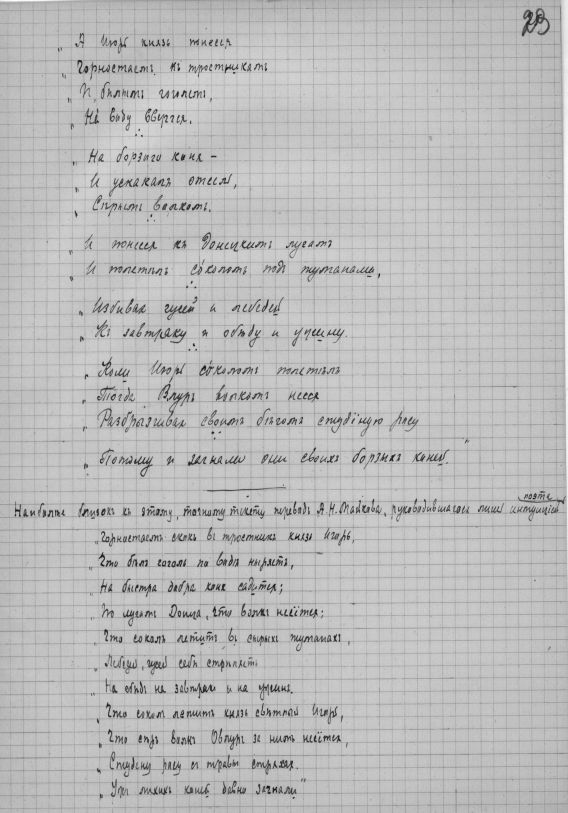 23
„ А Игорь князь понесся
„ Горностаемъ къ тростникамъ
„ И бѣлымъ гоголемъ,
„ На воду ввергся.
„ На борзаго коня —
„ И ускакалъ отселѣ,
„ Сѣрымъ волкомъ.
„ И понесся къ Донецкимъ лугамъ
„ И полетѣлъ соколомъ подъ туманами,
„ Избивая гусей и лебедей
„ Къ завтраку и обѣду и ужину.
„ Коли Игорь соколомъ полетѣлъ
„ Тогда Влуръ волкомъ несся
„ Разбрызгивая своимъ бѣгомъ студеную росу
„ Потому и загнали они своихъ борзыхъ коней. “
Наиболѣе близокъ къ этому, точному тексту переводъ А. Н. Майкова, руководившагося лишь интуиціей поэта
„ Горностаемъ скокъ въ тростникъ князь Игорь,
„ Что бѣлъ гоголь по водѣ ныряетъ,
„ На быстра добра коня садится;
„ По лугамъ Донца, что волкъ несётся;
„ Что соколъ летитъ въ сырыхъ туманахъ,
„ Лебедей, гусей себѣ стрѣляетъ
„ На обѣдъ на завтракъ и на ужинъ.
„ Что соколъ летитъ князь свѣтлый Игорь,
„ Что сѣръ волкъ Овлуръ за нимъ несётся,
„ Студену росу съ травы стряхая.
„ Ужъ лихихъ коней давно загнали “